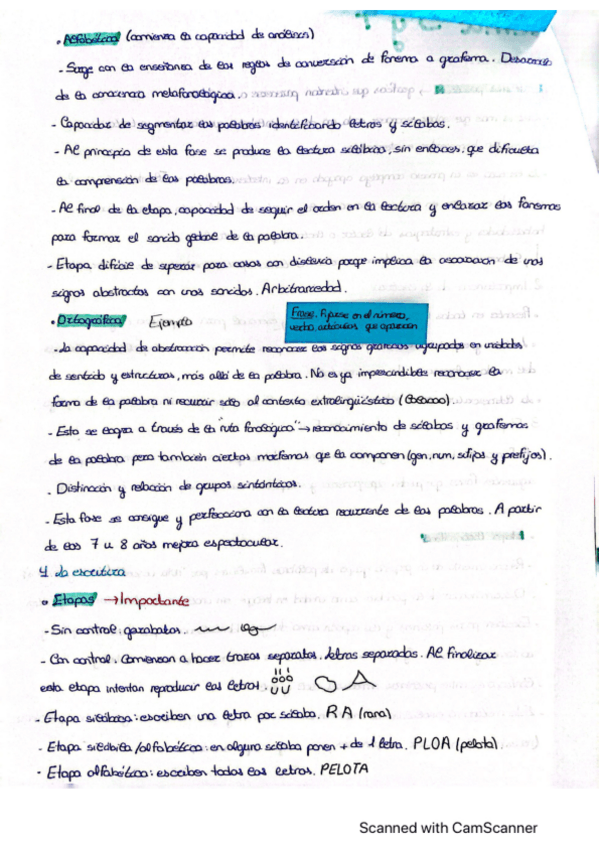 · Alfabética (comienza la capacidad de análisis)
- Surge con la enseñanza de las reglas de conversión de fonema a grafema. Desarrollo
de la conciencia metafonológica.
- Capacidad de segmentar las palabras identificando letras y sílabas.
- Al principio de esta fase se produce la lectura silábica, sin enlaces, que dificulta
la comprensión de las palabras.
- Al final de la etapa, capacidad de seguir el orden en la lectura y enlazar los fonemas
para formar el sonido global de la palabra.
- Etapa difícil de superar para casos con dislexia porque implica la asociación de unos
signos abstractos con unos sonidos. Arbitrariedad.
· Ortográfica Ejemplo
Frase. Fijarse en el número,
verbo, artículos que aparecen
- La capacidad de abstracción permite reconocer los signos gráficos agrupados en unidades
de sentido y estructuras, más allá de la palabra. No es ya imprescindible reconocer la
forma de la palabra ni recurrir sólo al contexto extralingüístico
- Esto se logra a través de la ruta fonológica → reconocimiento de sílabas y grafemas
de la palabra pero también ciertos morfemas que la componen (gen, num, sufijos y prefijos).
. Distinción y relación de grupos sintácticos.
- Esta fase se consigue y perfecciona con la lectura recurrente de las palabras. A partir
de los 7 u 8 años mejora espectacular.
4. La escritura
· Etapas → Importante
- Sin control: garabatos.
- Con control. Comienzan a hacer trazos separados, letras separadas. Al finalizar
esta etapa intentan reproducir las letras.
- Etapa silábica: escriben una letra por sílaba. RA (rana)
- Etapa silábica/alfabética: en alguna sílaba ponen + de 1 letra. PLOA (pelota).
- Etapa alfabética: escriben todas las letras. PELOTA
Scanned with CamScanner